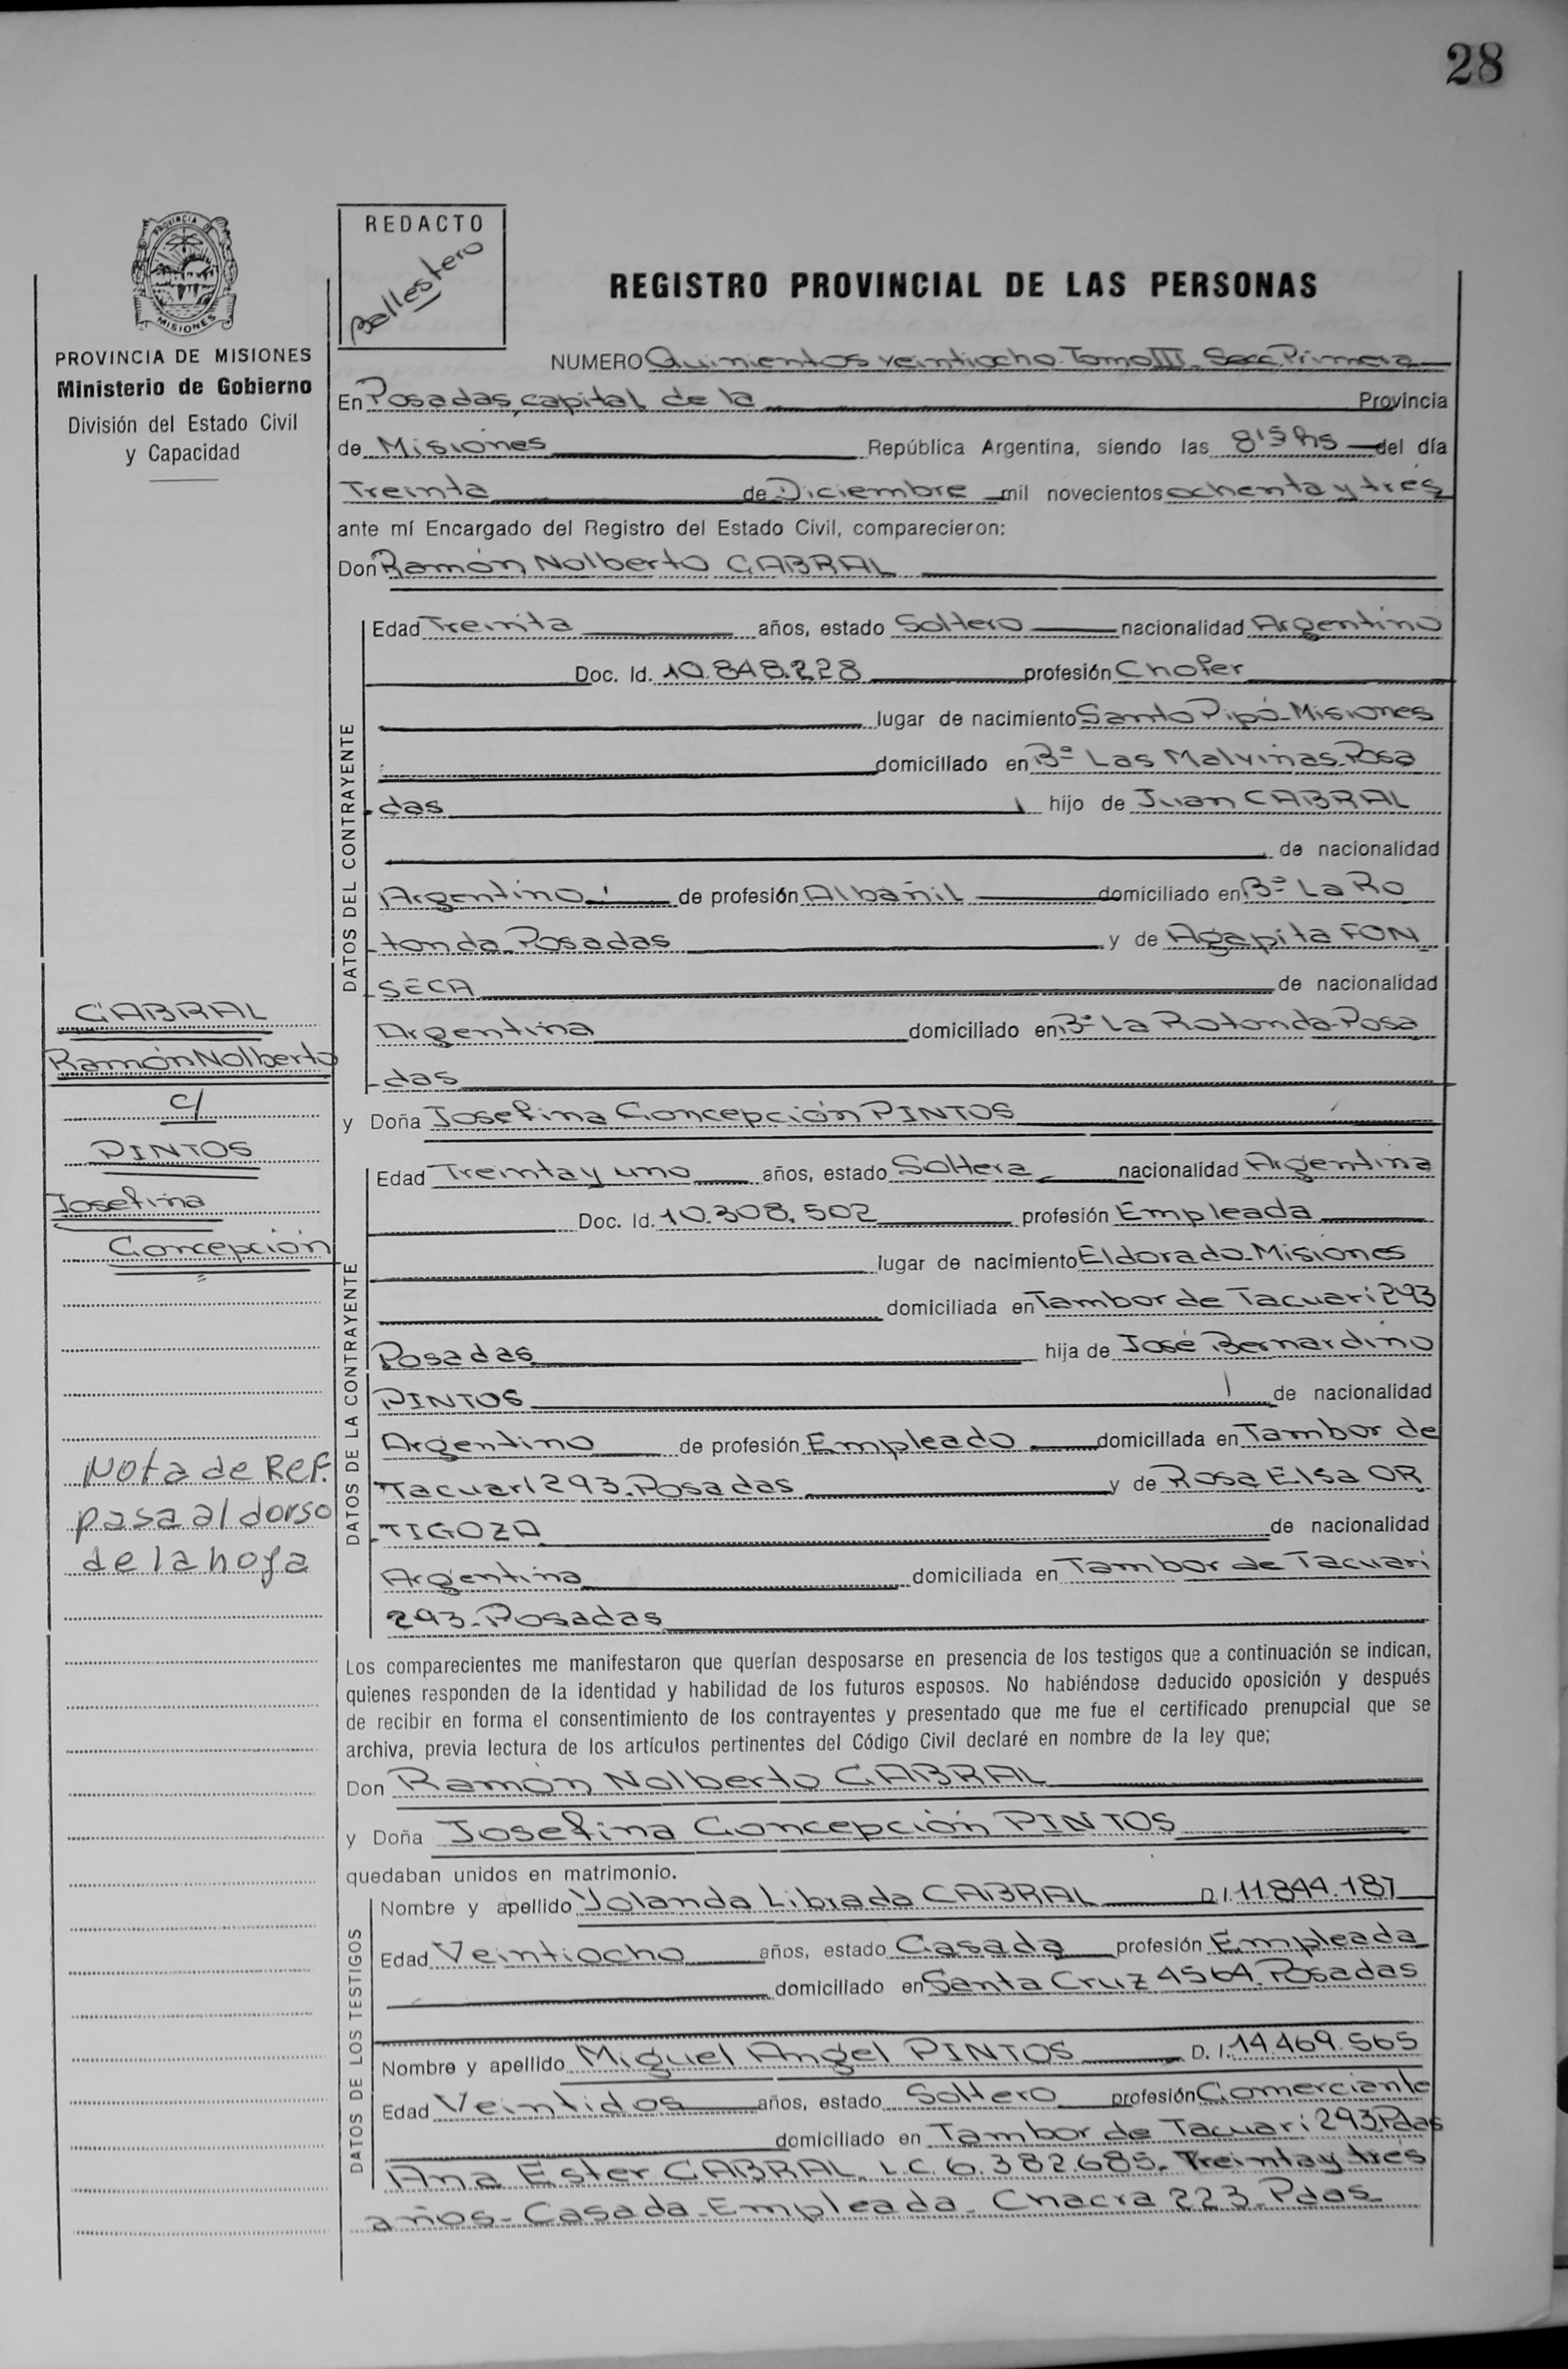 28
PROVINCIA DE
MISIONES
PROVINCIA DE MISIONES
Ministerio de Gobierno
División del Estado Civil
y Capacidad
REDACTO
Ballestero
REGISTRO PROVINCIAL DE LAS PERSONAS
NUMERO Quinientos veintiocho Tomo III - Secc. Primera
En Posadas, capital de la Provincia
de Misiones República Argentina, siendo las 8'15 hs del día
Treinta de Diciembre mil novecientos ochenta y tres
ante mí Encargado del Registro del Estado Civil, comparecieron:
Don Ramón Nolberto CABRAL
DATOS DEL CONTRAYENTE
Edad Treinta años, estado Soltero nacionalidad Argentino
Doc. Id. 10.848.228 profesión Chofer
lugar de nacimiento Santo Pipó-Misiones
domiciliado en Bº Las Malvinas-Posa
das hijo de Juan CABRAL
de nacionalidad
Argentino de profesión Albañil domiciliado en Bº La Ro
tonda-Posadas y de Agapita FON
SECA de nacionalidad
Argentina domiciliado en Bº La Rotonda-Posa
das
CABRAL
Ramón Nolberto
c/
PINTOS
Josefina
Concepción
Nota de Ref.
pasa al dorso
de la hoja
y Doña Josefina Concepción PINTOS
DATOS DE LA CONTRAYENTE
Edad Treinta y uno años, estado Soltera nacionalidad Argentina
Doc. Id. 10.308.502 profesión Empleada
lugar de nacimiento Eldorado-Misiones
domiciliada en Tambor de Tacuari 293
Posadas hija de José Bernardino
PINTOS de nacionalidad
Argentino de profesión Empleado domicillada en Tambor de
Tacuari 293-Posadas y de Rosa Elsa OR
TIGOZA de nacionalidad
Argentina domiciliada en Tambor de Tacuari
293-Posadas
Los comparecientes me manifestaron que querían desposarse en presencia de los testigos que a continuación se indican,
quienes responden de la identidad y habilidad de los futuros esposos. No habiéndose deducido oposición y después
de recibir en forma el consentimiento de los contrayentes y presentado que me fue el certificado prenupcial que se
archiva, previa lectura de los artículos pertinentes del Código Civil declaré en nombre de la ley que;
Don Ramón Nolberto CABRAL
y Doña Josefina Concepción PINTOS
quedaban unidos en matrimonio.
DATOS DE LOS TESTIGOS
Nombre y apellido Yolanda Librada CABRAL D.I. 11.844.187
Edad Veintiocho años, estado Casada profesión Empleada
domiciliado en Santa Cruz 4564-Posadas
Nombre y apellido Miguel Angel PINTOS D.I. 14.469.565
Edad Veintidos años, estado Soltero profesión Comerciante
domiciliado en Tambor de Tacuari 293 Pdas
Ana Ester CABRAL. L.C. 6.382.685. Treinta y tres
años-Casada-Empleada-Chacra 223-Pdas